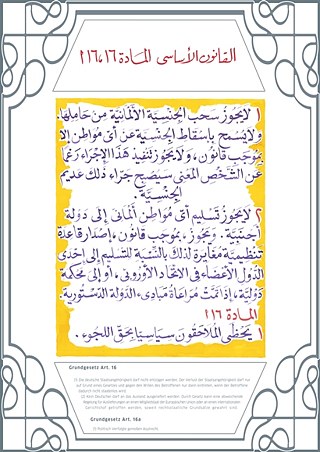 القانون الأساسي المادة ١٦، ١١٦
١ لا يجوز سحب الجنسية الألمانية من حاملها.
ولا يسمح بإسقاط الجنسية عن أي مواطن إلا
بموجب قانون، ولا يجوز تنفيذ هذا الإجراء رغما
عن الشخص المعني سيصبح جراء ذلك عديم
الجنسية
٢ لا يجوز تسليم أي مواطن ألماني إلى دولة
أجنبية. ويجوز، بموجب قانون، إصدار قاعدة
تنظيمية مغايرة لذلك بالنسبة للتسليم إلى إحدى
الدول الأعضاء في الاتحاد الأوروبي، أو إلى محكمة
دولية، إذا تمت مراعاة مبادئ الدولة الدستورية.
المادة ١١٦
١ يحظى الملاحقون سياسيا بحق اللجوء.
Grundgesetz Art. 16
(1) Die deutsche Staatsangehörigkeit darf nicht entzogen werden. Der Verlust der Staatsangehörigkeit darf nur
auf Grund eines Gesetzes und gegen den Willen des Betroffenen nur dann eintreten, wenn der Betroffene
dadurch nicht staatenlos wird.
(2) Kein Deutscher darf an das Ausland ausgeliefert werden. Durch Gesetz kann eine abweichende
Regelung für Auslieferungen an einen Mitgliedstaat der Europäischen Union oder an einen internationalen
Gerichtshof getroffen werden, soweit rechtsstaatliche Grundsätze gewahrt sind.
Grundgesetz Art. 16a
(1) Politisch Verfolgte genießen Asylrecht.